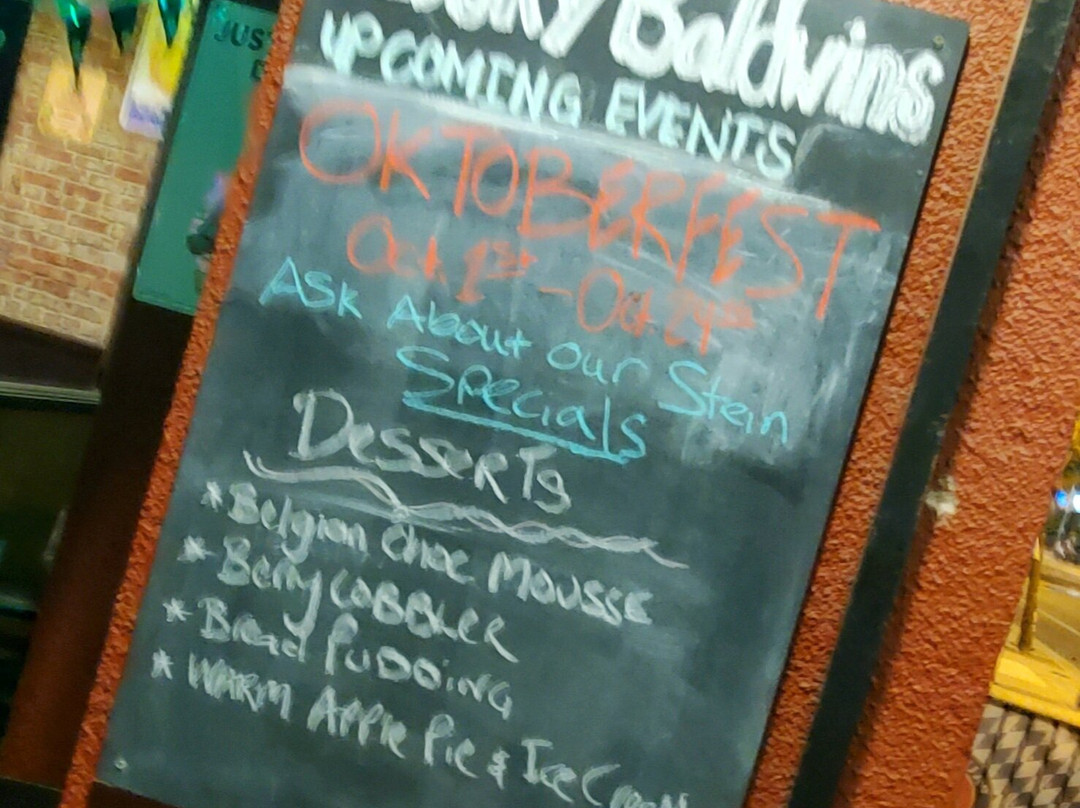 Baldwins
UPCOMING EVENTS
OKTOBERFEST
Oct 1st - Oct 24st
Ask About our Stein
Specials
Desserts
* Belgion Choc Mousse
* Berry Cobbler
* Bread Pudding
* Warm Apple Pie & Ice Cream
JUS